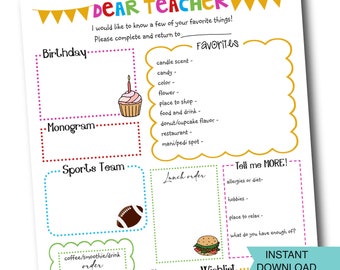 DEAR TEACHER
I would like to know a few of your favorite things!
Please complete and return to
Birthday
Favorites
candle scent -
candy -
color -
flower -
place to shop -
food and drink -
donut/cupcake flavor -
restaurant -
mani/pedi spot -
Monogram
Sports Team
Lunch order
Tell me MORE!
allergies or diet-
hobbies -
place to relax -
what do you have enough of?
coffee/smoothie/drink
order
INSTANT
DOWNLOAD